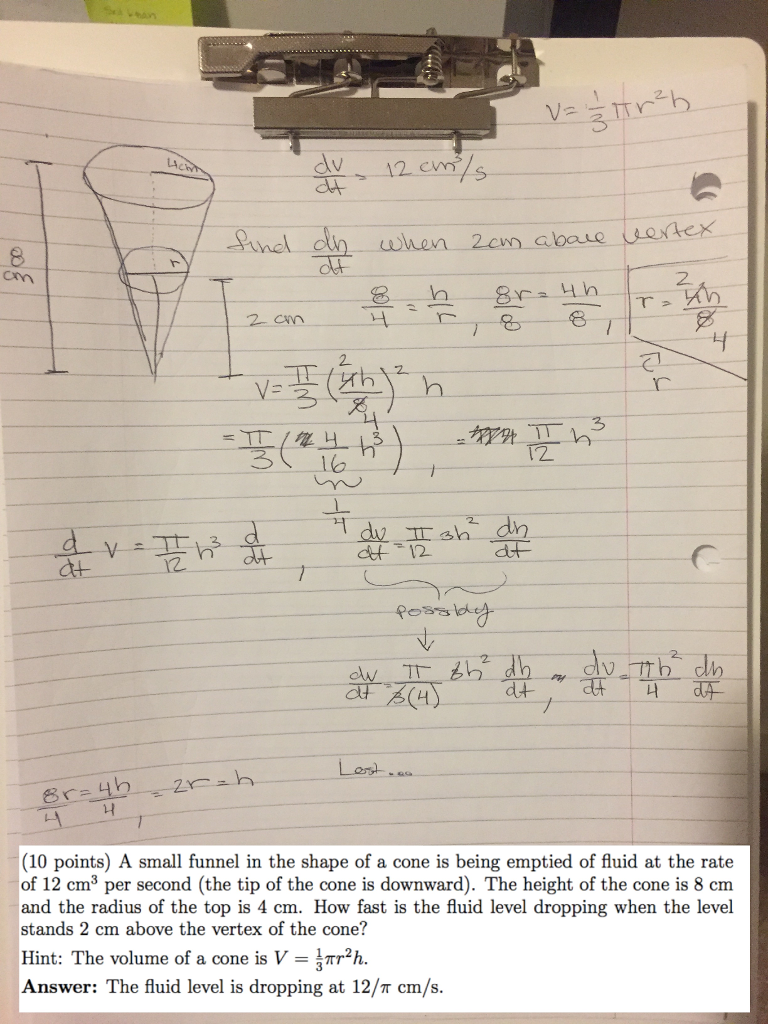 V = 1/3 πr²h
4cm
dv/dt = 12 cm³/s
8 cm
find dh/dt when 2cm above vertex
r
2 cm
8/4 = h/r , 8r/8 = 4h/8 , r = 2 4h/8 4
r
V = π/3 (2 4h/8 4)² h
= π/3 ( 4/16 h³ ) , = π/12 h³
1/4
d/dt V = π/12 h³ d/dt , dv/dt = π/12 3h² dh/dt
possibly
dv/dt = π/3(4) 3h² dh/dt , dv/dt = πh²/4 dh/dt
Lost...
8r/4 = 4h/4 , = 2r = h
(10 points) A small funnel in the shape of a cone is being emptied of fluid at the rate
of 12 cm³ per second (the tip of the cone is downward). The height of the cone is 8 cm
and the radius of the top is 4 cm. How fast is the fluid level dropping when the level
stands 2 cm above the vertex of the cone?
Hint: The volume of a cone is V = 1/3 πr²h.
Answer: The fluid level is dropping at 12/π cm/s.